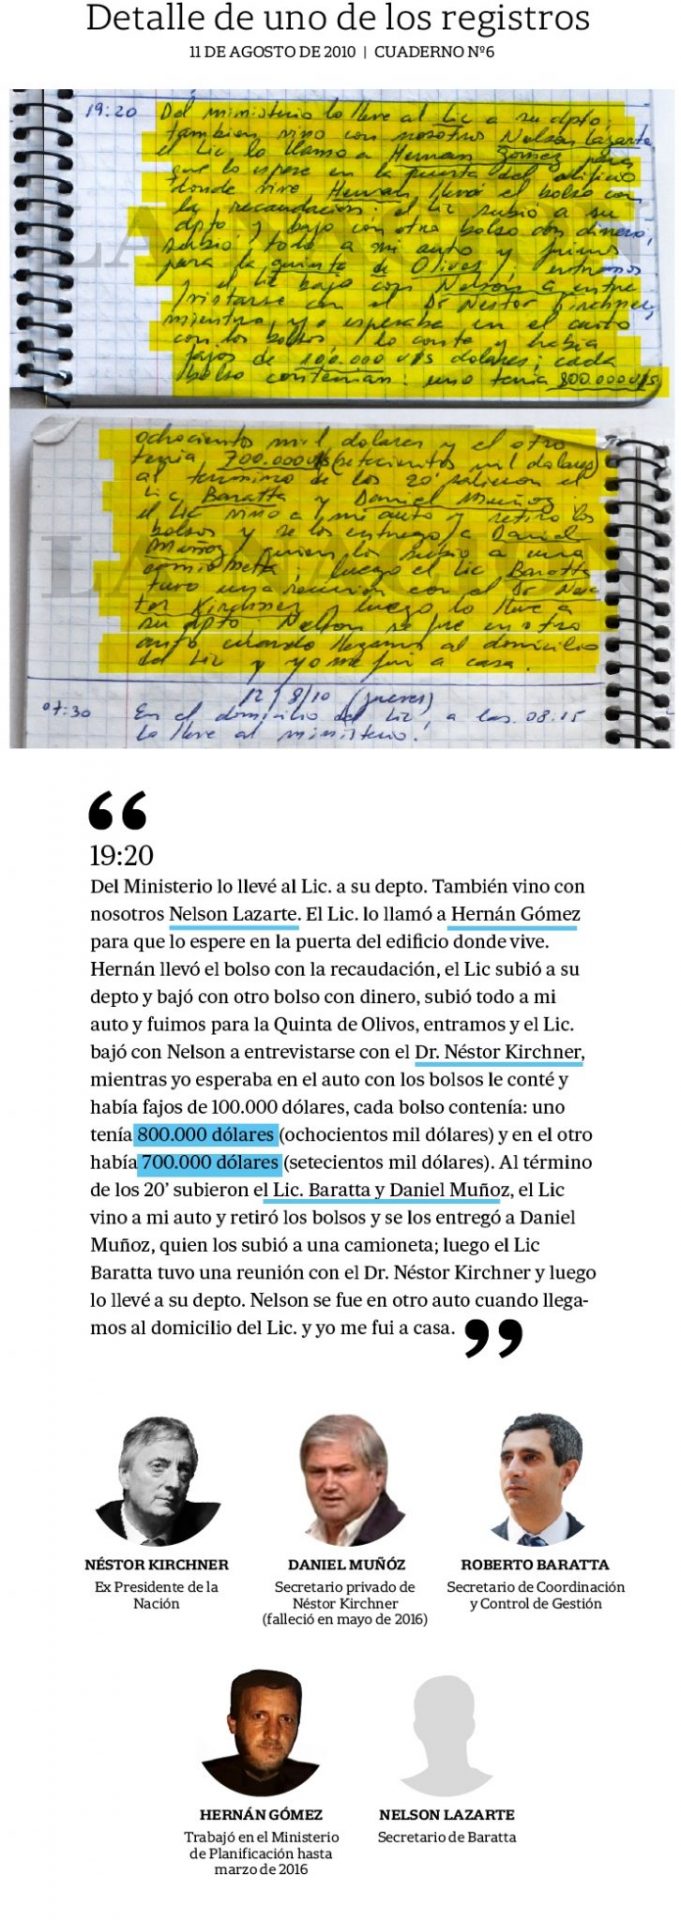 Detalle de uno de los registros
11 DE AGOSTO DE 2010 | CUADERNO Nº6
19:20 Del ministerio lo lleve al Lic a su dpto,
tambien vino con nosotros Nelson Lazarte
el Lic lo llamo a Hernan Gomez para
que lo espere en la puerta del edificio
donde vive Hernan llevó el bolso con
la recaudacion; el Lic, subió a su
dpto y bajo con otro bolso con dinero,
subio todo a mi auto y fuimos
para la quinta de Olivos, entramos
y el Lic bajo con Nelson a entre
vistarse con el Dr Nestor Kirchner,
mientras yo esperaba en el auto
con los bolsos, lo conte y habia
fajos de 100.000 U$S dolares; cada
bolso contenian: uno tenia 800.000 U$S
ochocientos mil dolares y el otro
tenia 700.000 U$S (setecientos mil dolares)
al termino de los 20' salieron el
Lic Baratta y Daniel Muñoz;
el Lic vino a mi auto y retiro los
bolsos y se los entrego a Daniel
Muñoz, quien los subio a una
camioneta; luego el Lic Baratta
tuvo una reunión con el Dr Nes
tor Kirchner y luego lo lleve a
su dpto. Nelson se fue en otro
auto cuando llegamos al domicilio
del Lic y yo me fui a casa.
12/8/10 (jueves)
07:30 En el domicilio del Lic, a las 08:15
lo lleve al ministerio.
LA NACION
LA NACION
“
19:20
Del Ministerio lo llevé al Lic. a su depto. También vino con
nosotros Nelson Lazarte. El Lic. lo llamó a Hernán Gómez
para que lo espere en la puerta del edificio donde vive.
Hernán llevó el bolso con la recaudación, el Lic subió a su
depto y bajó con otro bolso con dinero, subió todo a mi
auto y fuimos para la Quinta de Olivos, entramos y el Lic.
bajó con Nelson a entrevistarse con el Dr. Néstor Kirchner,
mientras yo esperaba en el auto con los bolsos le conté y
había fajos de 100.000 dólares, cada bolso contenía: uno
tenía 800.000 dólares (ochocientos mil dólares) y en el otro
había 700.000 dólares (setecientos mil dólares). Al término
de los 20’ subieron el Lic. Baratta y Daniel Muñoz, el Lic
vino a mi auto y retiró los bolsos y se los entregó a Daniel
Muñoz, quien los subió a una camioneta; luego el Lic
Baratta tuvo una reunión con el Dr. Néstor Kirchner y luego
lo llevé a su depto. Nelson se fue en otro auto cuando llega-
mos al domicilio del Lic. y yo me fui a casa. ”
NÉSTOR KIRCHNER
Ex Presidente de la
Nación
DANIEL MUÑÓZ
Secretario privado de
Néstor Kirchner
(falleció en mayo de 2016)
ROBERTO BARATTA
Secretario de Coordinación
y Control de Gestión
HERNÁN GÓMEZ
Trabajó en el Ministerio
de Planificación hasta
marzo de 2016
NELSON LAZARTE
Secretario de Baratta